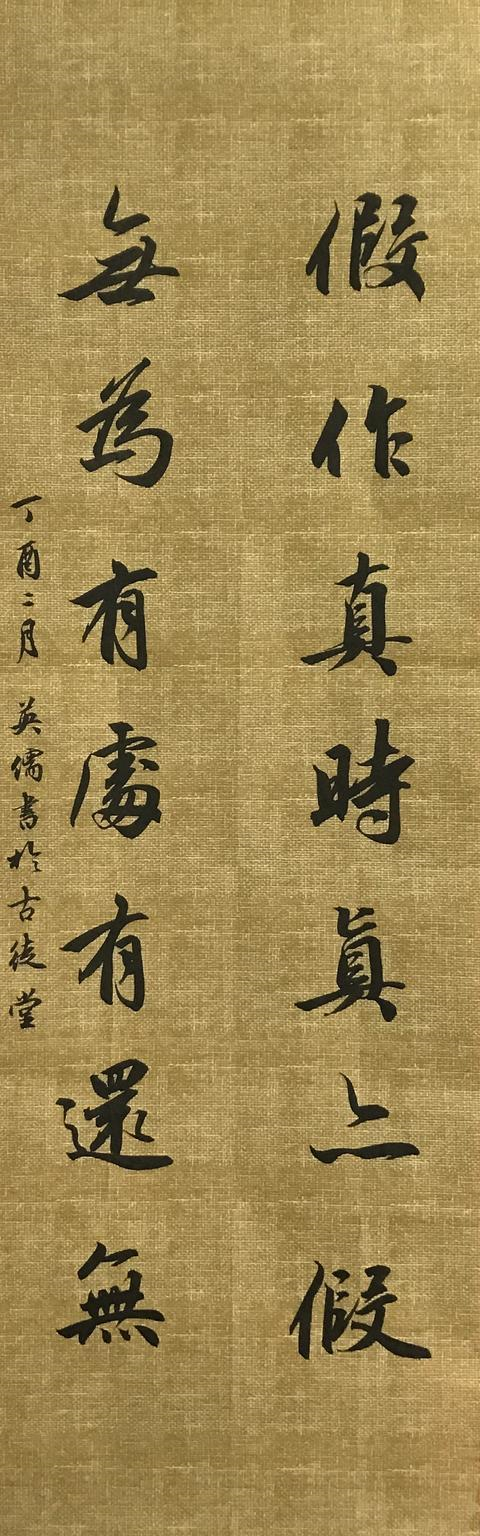 假作真時眞亦假
無為有處有還無
丁酉二月 英儒書於古徒堂